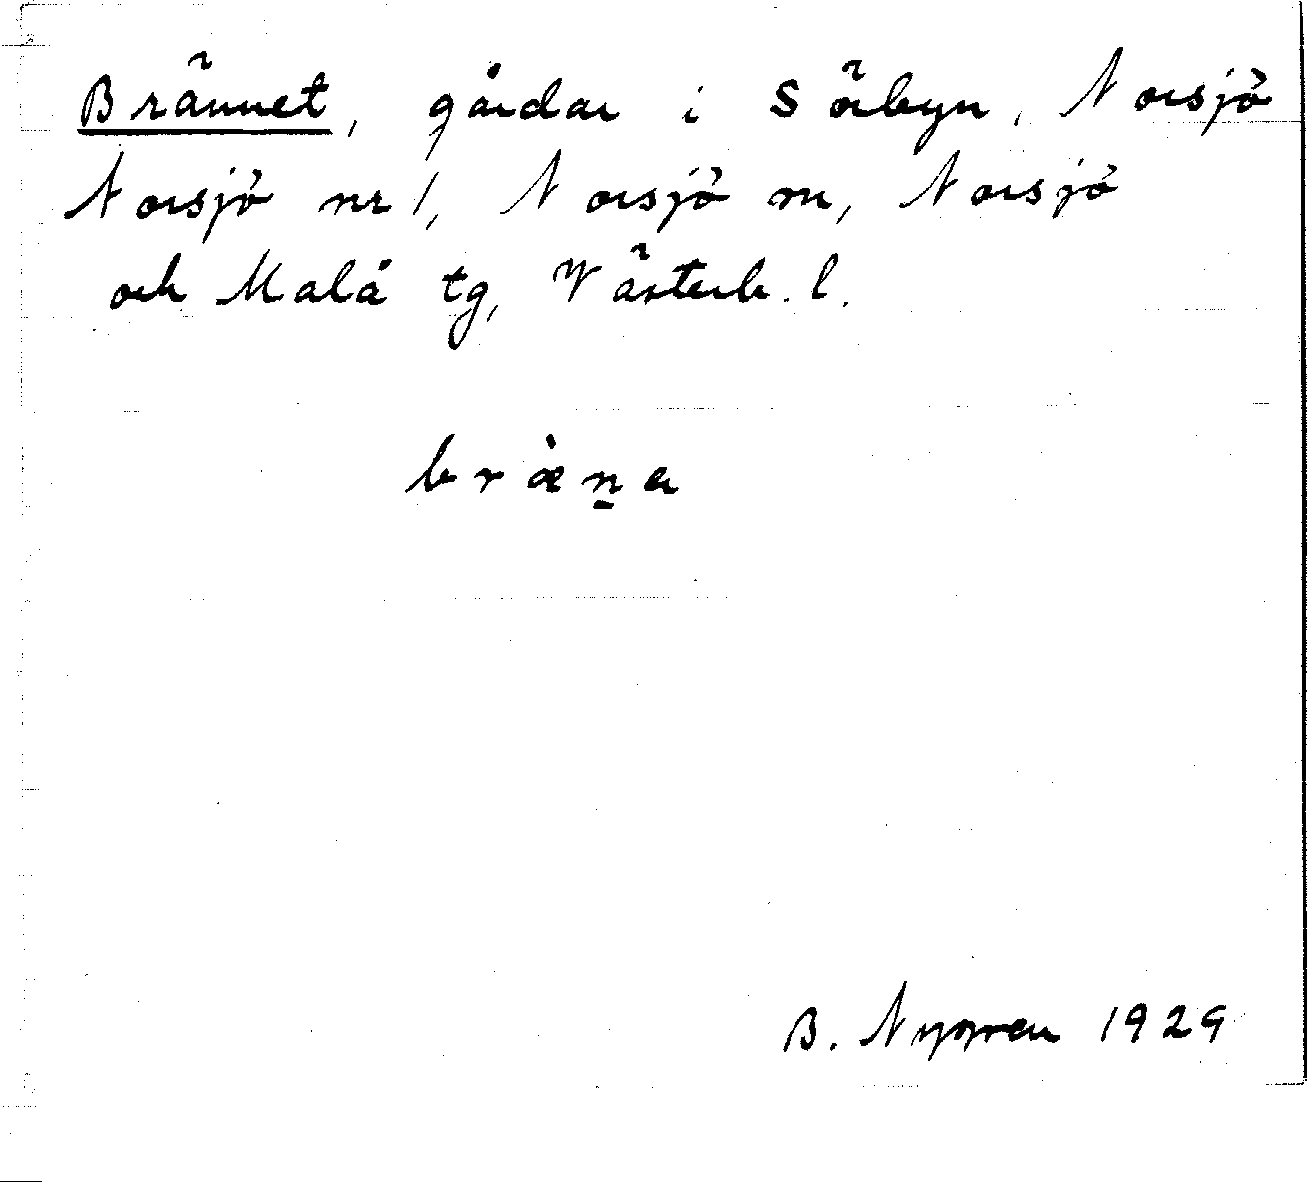 Brännet, gårdar i Sörbyn, Norsjö
Norsjö nr 1, Norsjö sn, Norsjö
och Malå tg, Västerb. l.
bræ̀n̠a
B. Nygren 1929